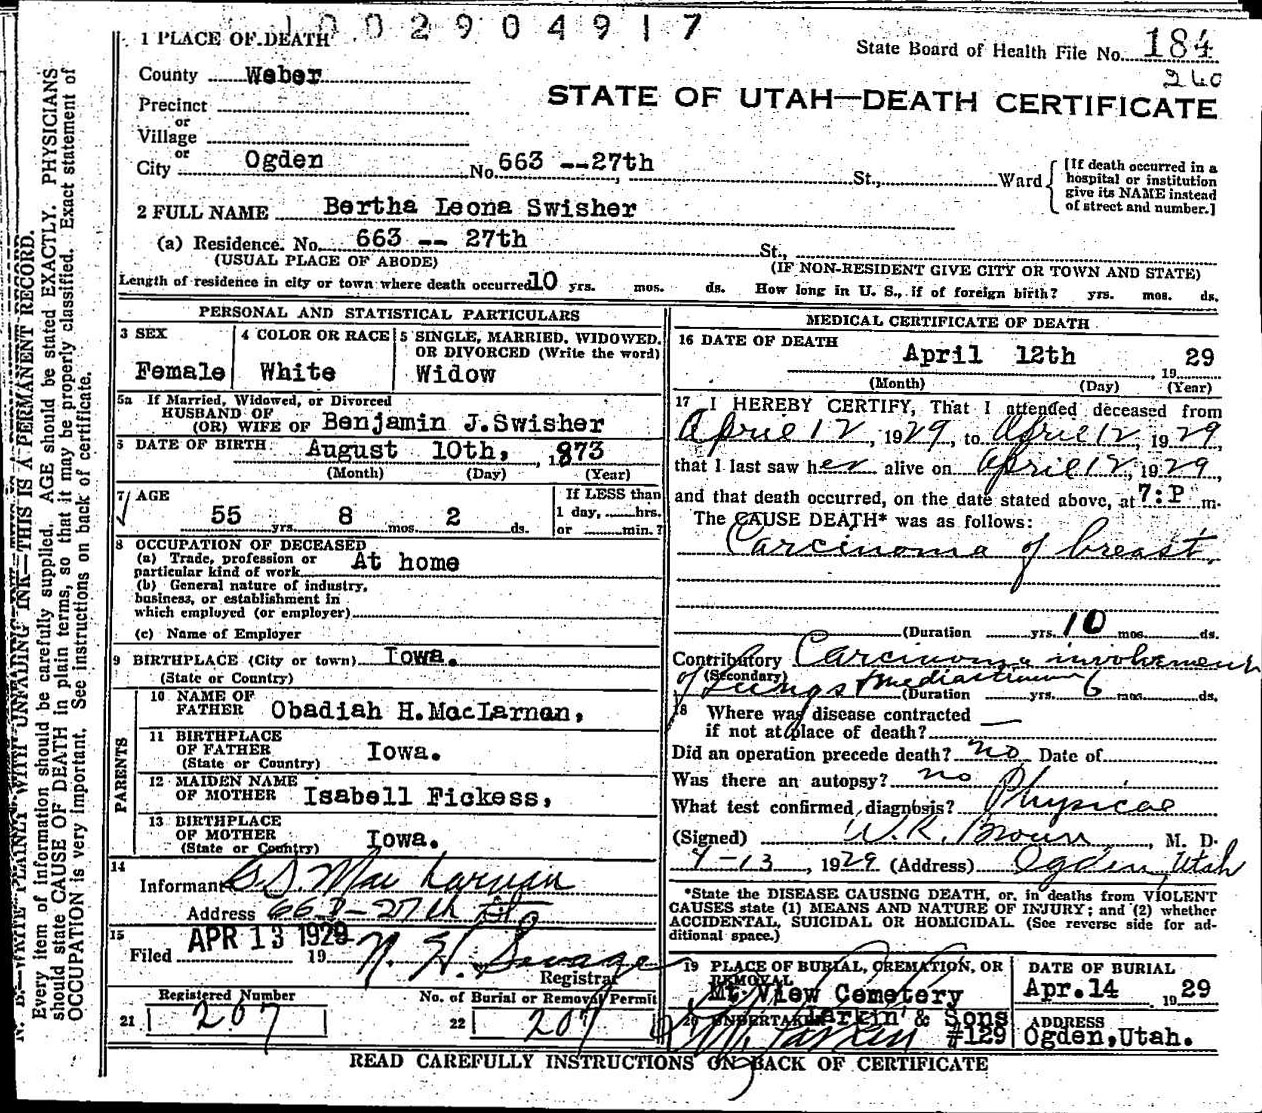 1002904917
1 PLACE OF DEATH
State Board of Health File No. 184
260
County Weber
STATE OF UTAH—DEATH CERTIFICATE
Precinct
or
Village
or
City Ogden No. 663 --27th St., Ward
[If death occurred in a
hospital or institution
give its NAME instead
of street and number.]
2 FULL NAME Bertha Leona Swisher
(a) Residence. No. 663 -- 27th St.,
(USUAL PLACE OF ABODE) (IF NON-RESIDENT GIVE CITY OR TOWN AND STATE)
Length of residence in city or town where death occurred 10 yrs. mos. ds. How long in U. S., if of foreign birth? yrs. mos. ds.
PERSONAL AND STATISTICAL PARTICULARS
3 SEX
Female
4 COLOR OR RACE
White
5 SINGLE, MARRIED, WIDOWED,
OR DIVORCED (Write the word)
Widow
5a If Married, Widowed, or Divorced
HUSBAND OF
(OR) WIFE OF Benjamin J.Swisher
6 DATE OF BIRTH August 10th, 1873
(Month) (Day) (Year)
7 AGE
55 yrs. 8 mos. 2 ds.
If LESS than
1 day, hrs.
or min.?
8 OCCUPATION OF DECEASED
(a) Trade, profession or
particular kind of work At home
(b) General nature of industry,
business, or establishment in
which employed (or employer)
(c) Name of Employer
9 BIRTHPLACE (City or town) Iowa.
(State or Country)
PARENTS
10 NAME OF
FATHER Obadiah H.MacLarnan,
11 BIRTHPLACE
OF FATHER Iowa.
(State or Country)
12 MAIDEN NAME
OF MOTHER Isabell Fickess,
13 BIRTHPLACE
OF MOTHER
(State or Country) Iowa.
14
Informant Mac Larnan
Address 663-27th St
15
Filed APR 13 1929 19
N. H. Savage
Registrar
Registered Number
21 207
No. of Burial or Removal Permit
22 207
MEDICAL CERTIFICATE OF DEATH
16 DATE OF DEATH
April 12th 19 29
(Month) (Day) (Year)
17 I HEREBY CERTIFY, That I attended deceased from
April 12, 1929, to April 12, 1929
that I last saw her alive on April 12, 1929,
and that death occurred, on the date stated above, at 7:P m.
The CAUSE DEATH* was as follows:
Carcinoma of breast
(Duration yrs. 10 mos. ds.
Contributory Carcinoma involvement
(Secondary)
of Lungs & mediastinum
(Duration yrs. 6 mos. ds.
18 Where was disease contracted
if not at place of death?
Did an operation precede death? no Date of
Was there an autopsy? no
What test confirmed diagnosis? Physical
(Signed) W.R. Brown, M. D.
4-13, 1929 (Address) Ogden, Utah
*State the DISEASE CAUSING DEATH, or, in deaths from VIOLENT
CAUSES state (1) MEANS AND NATURE OF INJURY; and (2) whether
ACCIDENTAL, SUICIDAL OR HOMICIDAL. (See reverse side for ad-
ditional space.)
19 PLACE OF BURIAL, CREMATION, OR
REMOVAL
Mt. View Cemetery
DATE OF BURIAL
Apr.14, 19 29
20 UNDERTAKER Larkin & Sons
#129
ADDRESS
Ogden,Utah.
READ CAREFULLY INSTRUCTIONS ON BACK OF CERTIFICATE
N. B.—WRITE PLAINLY WITH UNFADING INK—THIS IS A PERMANENT RECORD.
Every item of information should be carefully supplied. AGE should be stated EXACTLY. PHYSICIANS
should state CAUSE OF DEATH in plain terms, so that it may be properly classified. Exact statement of
OCCUPATION is very important. See instructions on back of certificate.